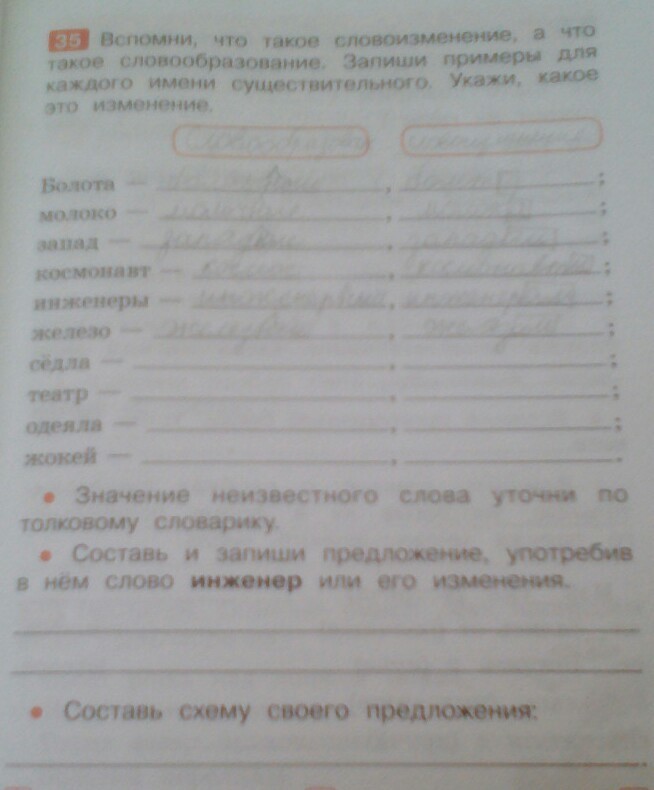 35 Вспомни, что такое словоизменение, а что
такое словообразование. Запиши примеры для
каждого имени существительного. Укажи, какое
это изменение.
Болота — , ;
молоко — , ;
запад — , ;
космонавт — космос , ;
инженеры — , ;
железо — , ;
сёдла — , ;
театр — , ;
одеяла — , ;
жокей — , .
• Значение неизвестного слова уточни по
толковому словарику.
• Составь и запиши предложение, употребив
в нём слово инженер или его изменения.
• Составь схему своего предложения: